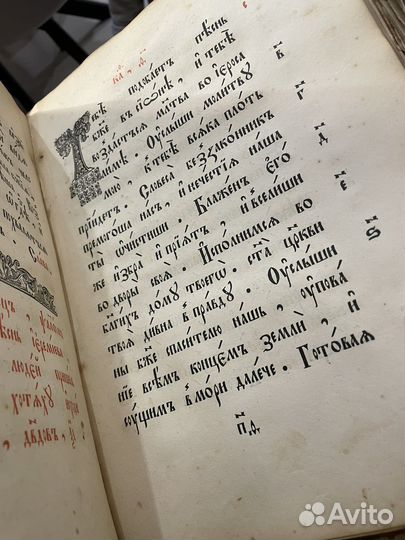 к҃а , д҃
Тебѣ подобаетъ пѣснь
бж҃е въ сїѡ́нѣ , и҆ тебѣ̀
возда́стсѧ мл҃тва во і҆еросꙋ
ли́мѣ . Оу҆слы́ши моли́твꙋ
мою̀ , к тебѣ̀ всѧ́ка пло́ть
прїи́детъ . Словеса̀ беззако́нникъ
премого́ша на́съ , и҆ нече́стїѧ на́ша
ты̀ ѡ҆чи́стиши . Блаже́нъ є҆го́
же и҆збра̀ и҆ прїѧ́тъ , и҆ всели́ши
во дворы̀ своѧ̀ . И҆спо́лнимсѧ во
благи́хъ до́мꙋ твоегѡ̀ . ст҃а цр҃кви
твоѧ̀ ди́вна в пра́вдꙋ . Оу҆слы́ши
ны̀ бж҃е спаси́телю на́шь , оу҆пова́
нїе всѣ́мъ конце́мъ землѝ , и҆
сꙋ́щимъ в мо́ри дале́че . Гото́ваѧ
в҃
г҃
д҃
е҃
ѕ҃
пд҃
люде́й
хотѧ́хꙋ
дв҃довъ
Avito